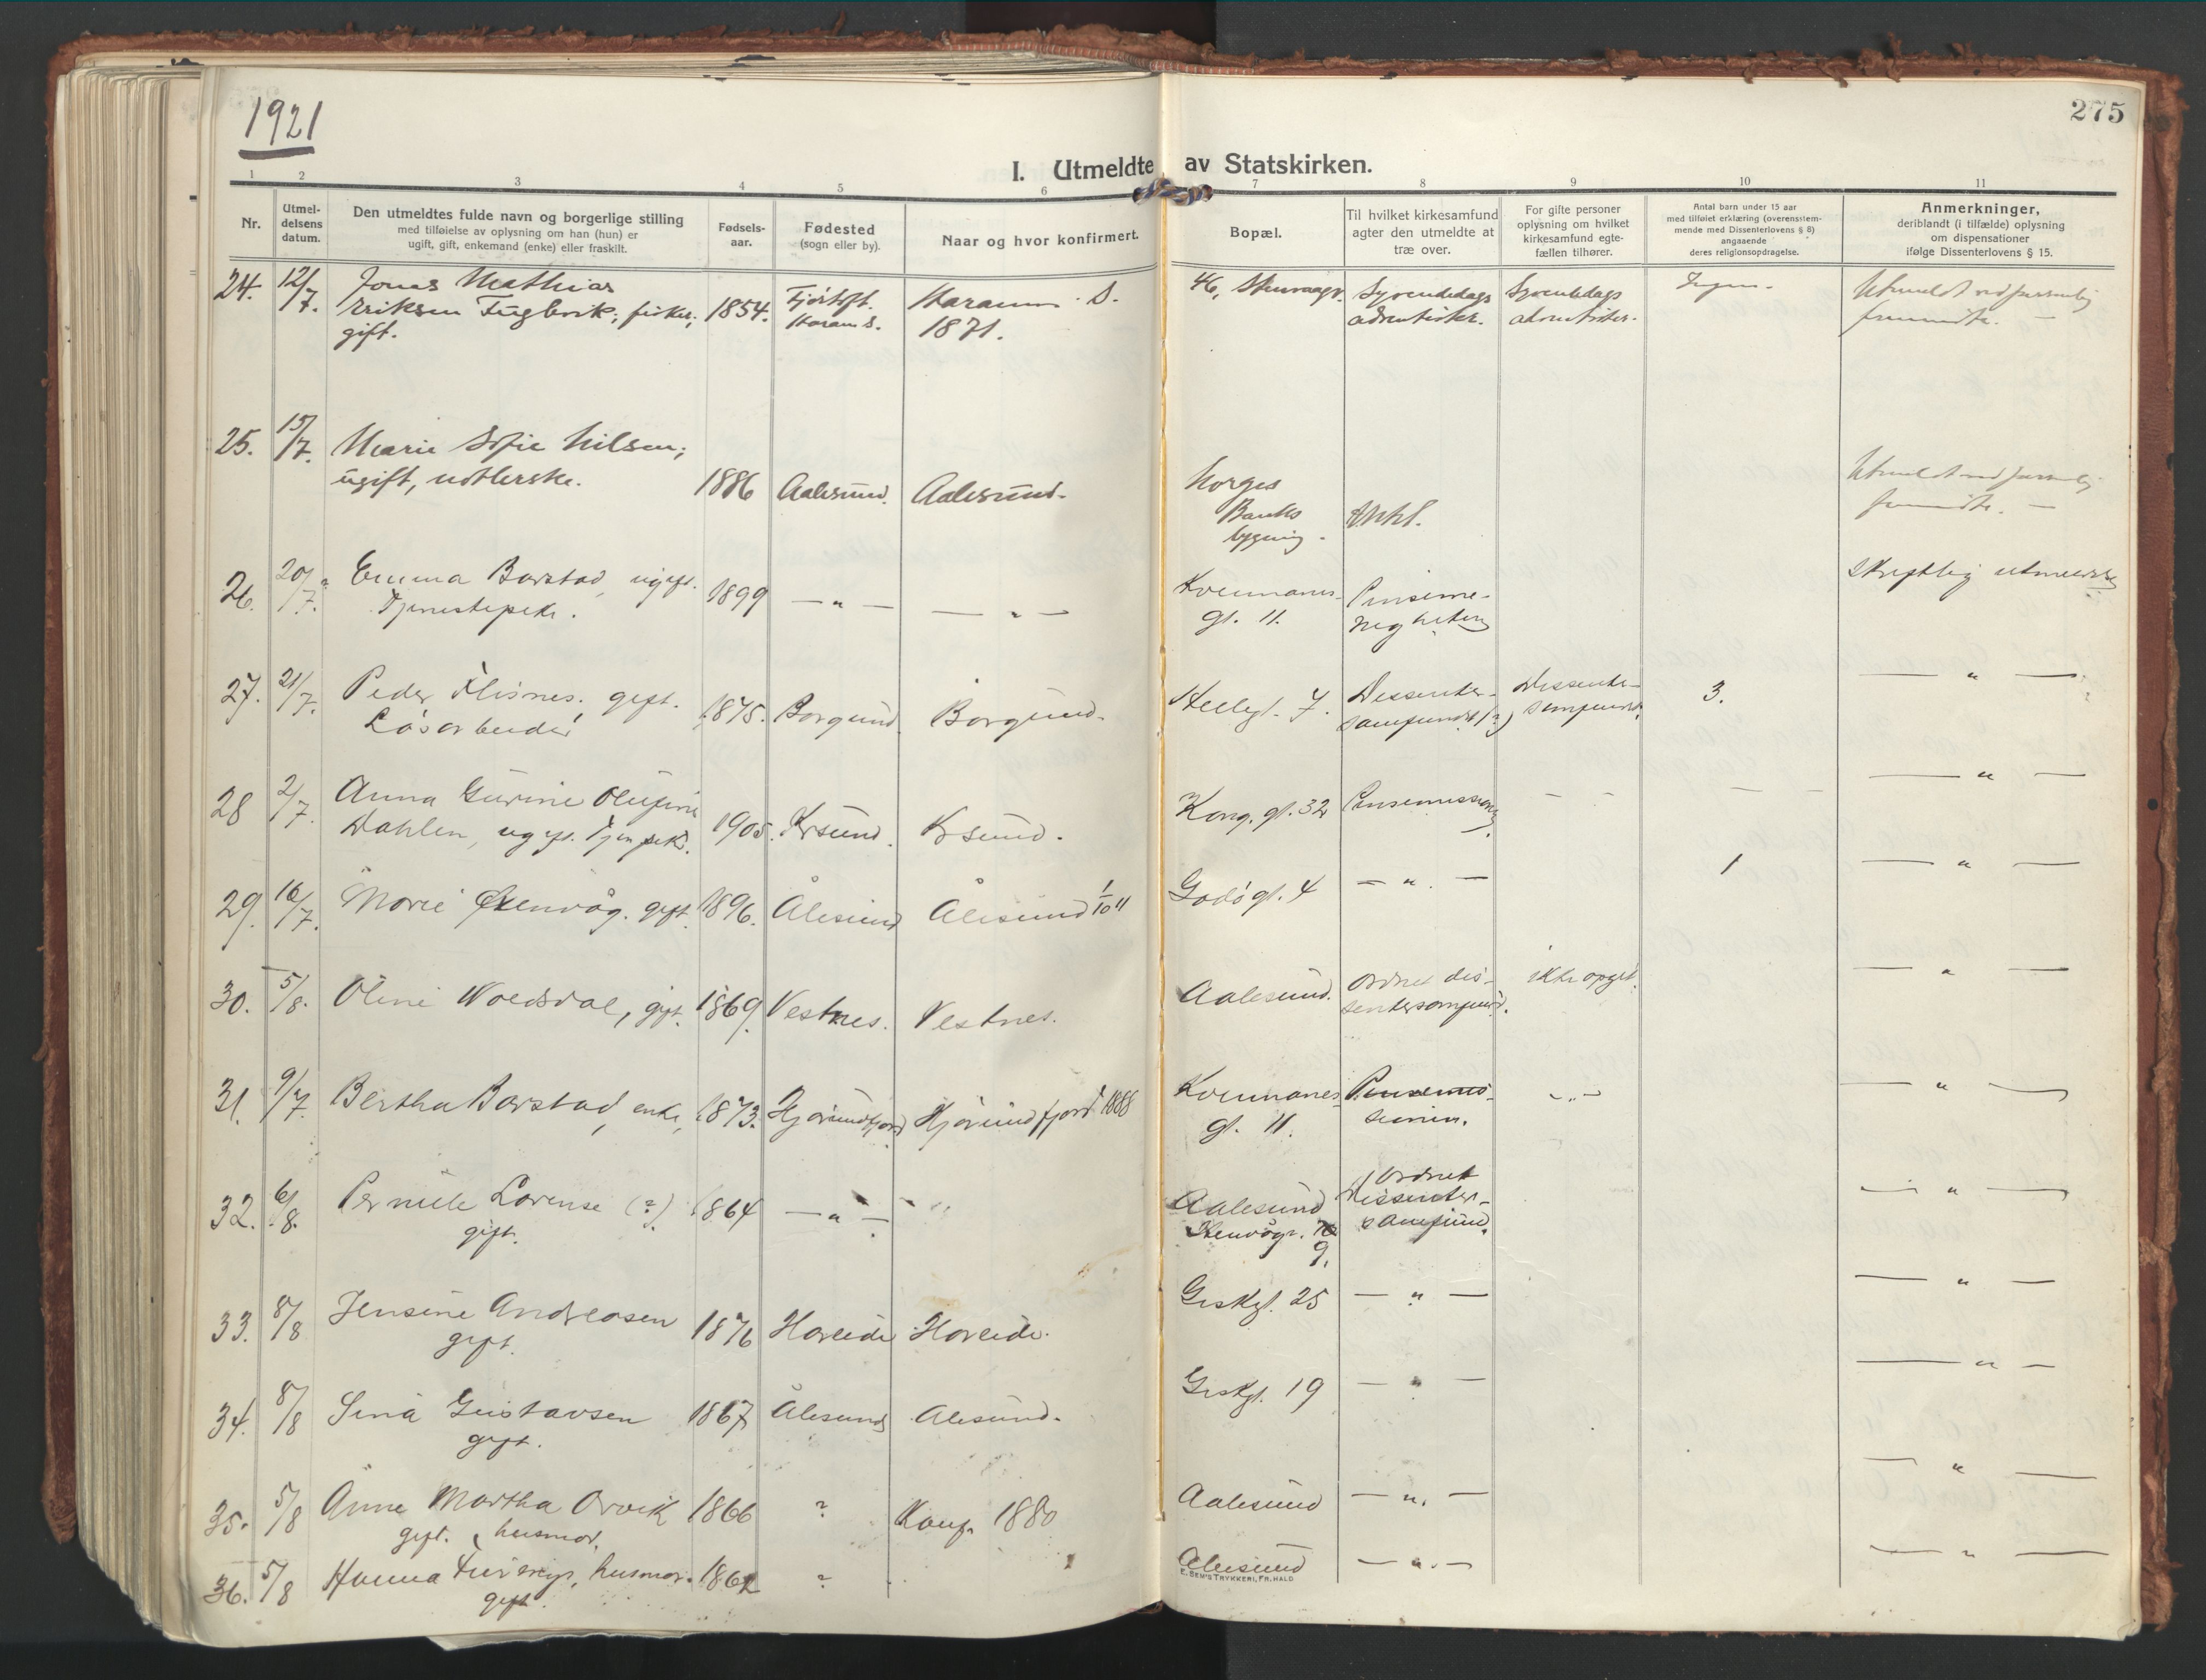 1921
275
I. Utmeldte av Statskirken.
1 2 3 4 5 6 7 8 9 10 11
Nr.
Utmel-
delsens
datum.
Den utmeldtes fulde navn og borgerlige stilling
med tilføielse av oplysning om han (hun) er
ugift, gift, enkemand (enke) eller fraskilt.
Fødsels-
aar.
Fødested
(sogn eller by).
Naar og hvor konfirmert.
Bopæl.
Til hvilket kirkesamfund
agter den utmeldte at
træ over.
For gifte personer
oplysning om hvilket
kirkesamfund egte-
fællen tilhører.
Antal barn under 15 aar
med tilføiet erklæring (overensstem-
mende med Dissenterlovens § 8)
angaaende
deres religionsopdragelse.
Anmerkninger,
deriblandt (i tilfælde) oplysning
om dispensationer
ifølge Dissenterlovens § 15.
24. 12/7. Jonas Mathias
Eriksen Fuglevik; fisker; 1854. Fjørtoft Haram S. 1871.
gift. Haram s.
46, Syvendedags Syvendedags Ingen.
adventister. adventister.
25. 15/7. Marie Sofie Nilsen;
ugift, 1886 Aalesund. Aalesund.
Norges
Banks
bygning.
26. 20/7. Emma Barstad, ugift. 1899 — " — — " —
Tjenestepike.
Kvennanes- Pinseme-
gt. 11. nigheten
Skriftlig utmeldelse
27. 21/7. Peder Flisnes. gift. 1875. Borgund. Borgund.
Løsarbeider
Hellegt. 7. Dissenter- Dissenter- 3. — " —
samfundet (?) samfundet.
28 2/7. Anna Gurine Olufine
Dahlen, ugift. Tjen.pike. 1905. Krsund. Krsund.
Kong. gt. 32 Pinsemissionen. — — — " —
29. 16/7. Marie Stenvåg. gift. 1896. Ålesund Ålesund 1/10 11
Godøgt. 4 — " — 1 — " —
30. 5/8. Oline Voldsdal, gift. 1869. Vestnes. Vestnes.
Aalesund. Ordnet dis- ikke opgit. — " —
sentersamfund.
31. 9/7. Bertha Barstad, enke, 1873. Hjørundfjord Hjørundfjord 1888
Kvennanes- Pinsemis- — " — — " —
gt. 11. sionen.
32. 6/8. Pernille Lorense (?) 1864 — " —
gift.
Aalesund Ordnet
Stenvågv. Dissenter- — " —
9. samfund.
33. 8/8 Jensine Andreasen 1876 Hareide Hareide.
gift.
Giskgt. 25 — " — — " —
34. 8/8 Sina Gustavsen 1867 Ålesund Ålesund.
gift.
Giskgt. 19 — " — — " —
35. 5/8 Anne Martha Orvik 1866 ? Konf. 1880
gift. husmor.
Aalesund — " — — " —
36. 5/8 Hanna husmor. 1862 ?
gift.
Ålesund — " — — " —
E. SEM'S TRYKKERI, FR.HALD